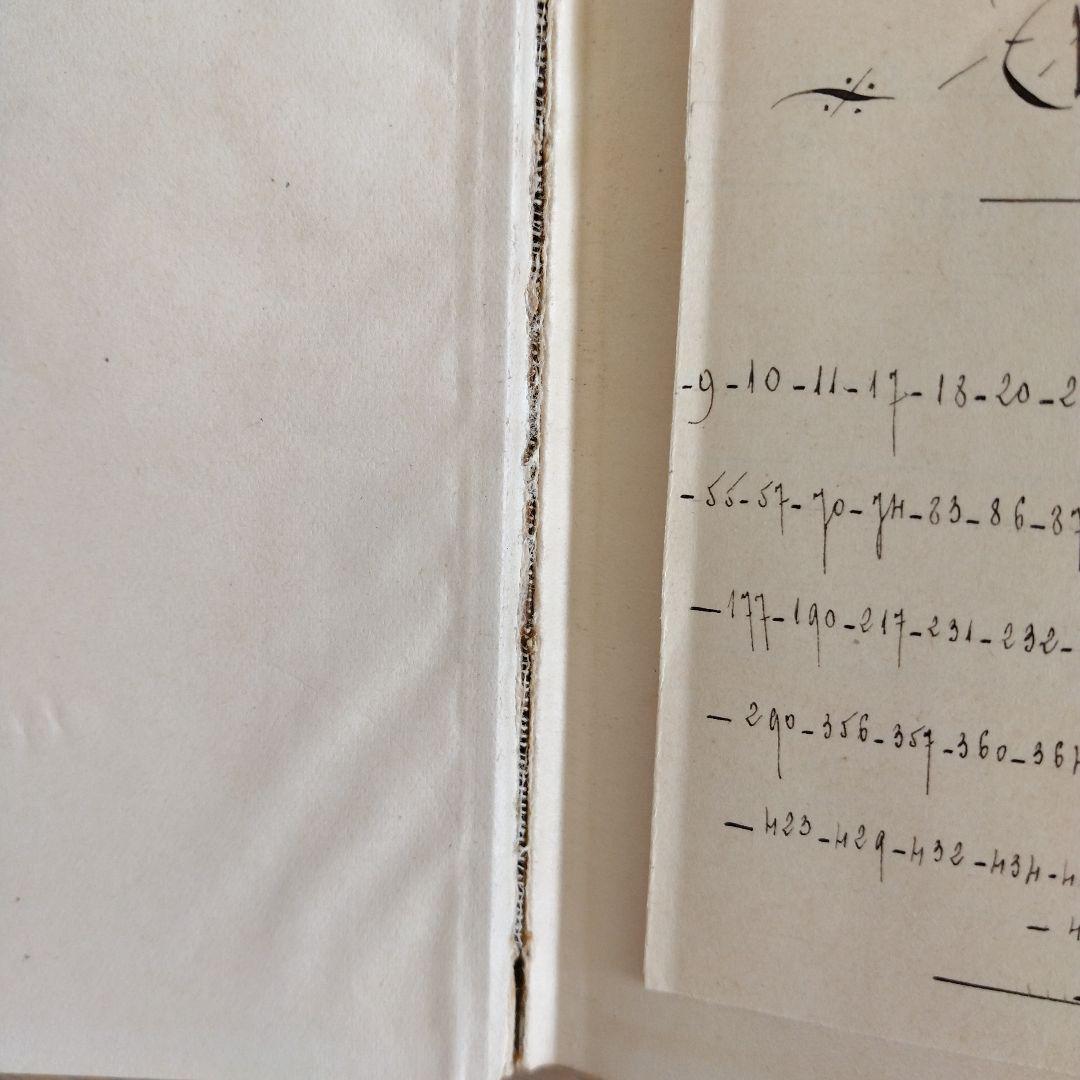 -9-10-11-17-18-20-2
-55-57-70-74-83-86-87
-177-190-217-231-232-
-290-356-357-360-364
-423-429-432-434-4
-4